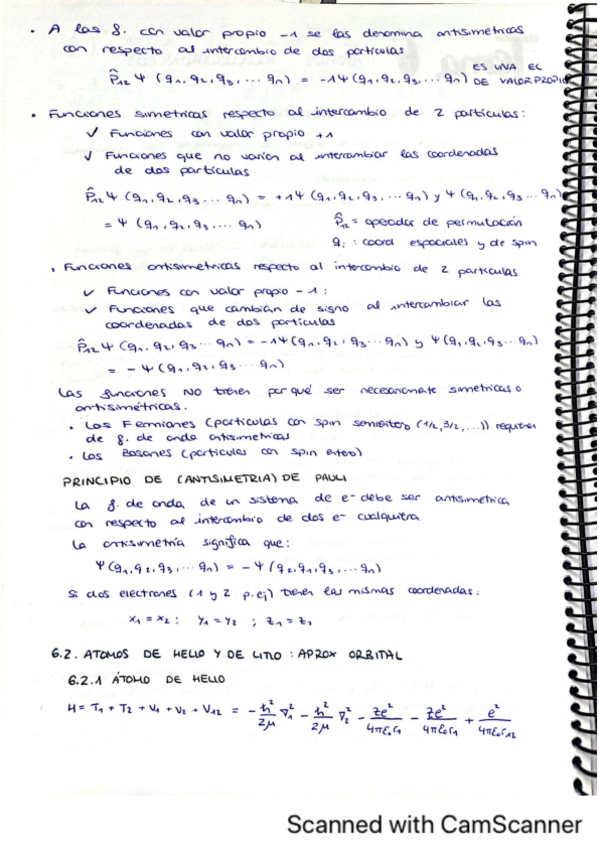 · A las f. con valor propio -1 se las denomina antisimetricas
con respecto al intercambio de dos particulas
P̂₁₂ Ψ (q₁, q₂, q₃, ... qₙ) = -1Ψ (q₁, q₂, q₃, ... qₙ) ES UNA EC DE VALOR PROPIO
· Funciones simetricas respecto al intercambio de 2 partículas:
✓ Funciones con valor propio +1
✓ Funciones que no varían al intercambiar las coordenadas
de dos partículas
P̂₁₂ Ψ (q₁, q₂, q₃ ... qₙ) = +1Ψ (q₁, q₂, q₃, ... qₙ) y Ψ (q₁, q₂, q₃ ... qₙ)
= Ψ (q₁, q₂, q₃, ... qₙ) P̂₁₂ = operador de permutación
qᵢ : coord espaciales y de spin
· Funciones antisimetricas respecto al intercambio de 2 particulas
✓ Funciones con valor propio -1:
✓ Funciones que cambian de signo al intercambiar las
coordenadas de dos partículas
P̂₁₂ Ψ (q₁, q₂, q₃ ... qₙ) = -1Ψ (q₁, q₂, q₃ ... qₙ) y Ψ (q₁, q₂, q₃ ... qₙ)
= - Ψ (q₁, q₂, q₃ ... qₙ)
Las funciones NO tienen por qué ser necesariamente simetricas o
antisimétricas.
· Los Fermiones (partículas con spin semientero (1/2, 3/2, ...)) requieren
de f. de onda antisimetricas
· Los Bosones (partículas con spin entero)
PRINCIPIO DE (ANTISIMETRIA) DE PAULI
La f. de onda de un sistema de e- debe ser antisimetrica
con respecto al intercambio de dos e- cualquiera
La antisimetría significa que:
Ψ (q₁, q₂, q₃, ... qₙ) = - Ψ (q₂, q₁, q₃, ... qₙ)
Si dos electrones (1 y 2 p.ej) tienen las mismas coordenadas:
x₁ = x₂ ; y₁ = y₂ ; z₁ = z₂
6.2. ATOMOS DE HELIO Y DE LITIO : APROX ORBITAL
6.2.1 ÁTOMO DE HELIO
H = T₁ + T₂ + V₁ + V₂ + V₁₂ = - ħ²/2μ ∇₁² - ħ²/2μ ∇₂² - Ze²/4πε₀r₁ - Ze²/4πε₀r₁ + e²/4πε₀r₁₂
Scanned with CamScanner